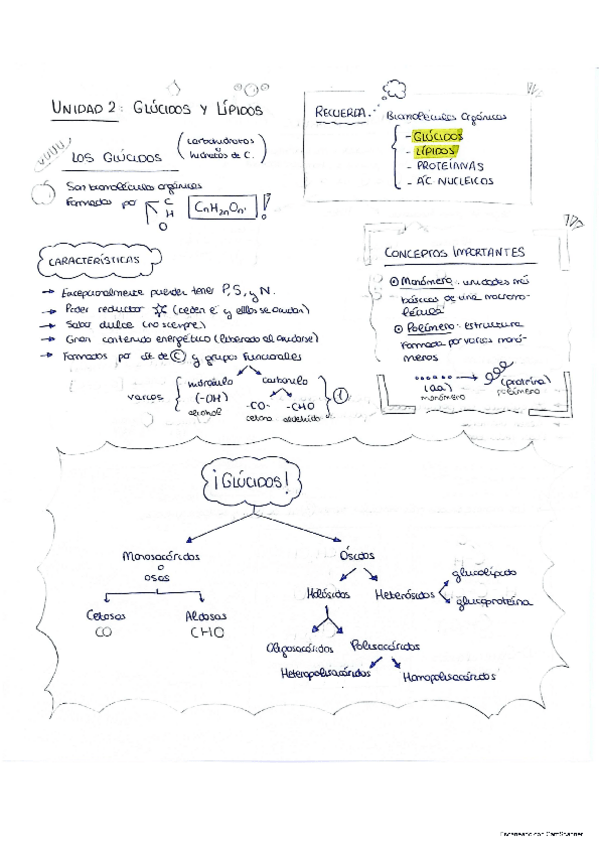 UNIDAD 2: GLÚCIDOS Y LÍPIDOS
LOS GLÚCIDOS (carbohidratos o hidratos de C.)
Son biomoléculas orgánicas
Formados por C H O CnH2nOn. !
RECUERDA. Biomoléculas orgánicas
- GLÚCIDOS
- LÍPIDOS
- PROTEÍNAS
- ÁC NUCLEICOS
CARACTERÍSTICAS
→ Excepcionalmente pueden tener P, S, y N.
→ Poder reductor (ceden e⁻ y ellos se oxidan)
→ Sabor dulce (no siempre)
→ Gran contenido energético (liberado al oxidarse)
→ Formados por át. de C y grupos funcionales
varios
hidroxilo
(-OH)
alcohol
carbonilo
-CO- -CHO
cetona aldehído
1
CONCEPTOS IMPORTANTES
Monómero: unidades más
básicas de una macromo-
lécula
Polímero: estructura
formada por varios monó-
meros
(aa) → (proteína)
monómero polímero
¡GLÚCIDOS!
Monosacáridos
o
osas
Cetosas
CO
Aldosas
CHO
Ósidos
Holósidos Heterósidos
glucolípido
glucoproteína
Oligosacáridos Polisacáridos
Heteropolisacáridos Homopolisacáridos
Escaneado con CamScanner